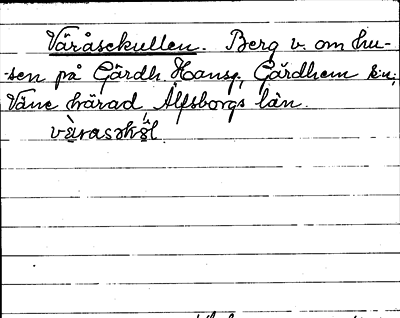 Våråsekullen. Berg v. om hu-
-sen på Gårdh. Hansg, Gärdhem sn;
Väne härad Älfsborgs län.